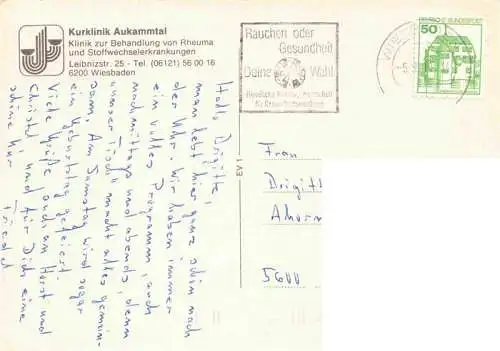 Kurklinik Aukammtal
Klinik zur Behandlung von Rheuma
und Stoffwechselerkrankungen
Leibnizstr. 25 - Tel. (06121) 56 00 16
6200 Wiesbaden
Rauchen oder
Gesundheit
Deine Wahl
DEUTSCHE BUNDESPOST
50
EV 1
Hallo, Brigitte,
man lebt hier ganz schön nach
der Uhr. Wir haben immer
ein volles Programm, auch
nachmittags und abends, denn
"unser Tisch" macht alles gemein-
sam. Am Samstag wird sogar
ein Geburtstag gefeiert.
Viele Grüße auch an Horst und
Christel und für Dich eine
schöne Kur
Friedel
Frau
Brigitt
Ahorn
5600